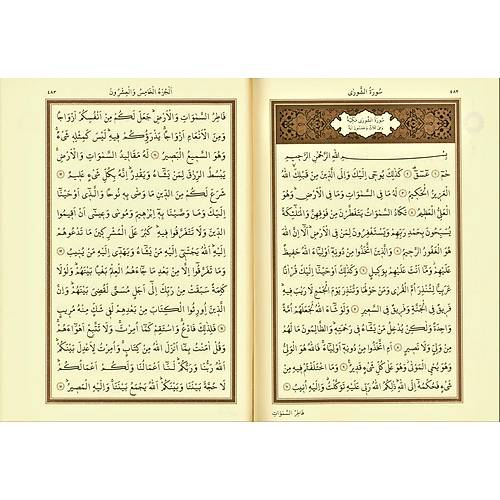 سُورَةُ الشُّورٰى ٤٨٢
سُورَةُ الشُّورٰى مَكِّيَّةٌ
وَهِيَ ثَلَاثٌ وَخَمْسُونَ اٰيَةً
بِسْمِ اللّٰهِ الرَّحْمٰنِ الرَّحِيمِ
حٰمٓ ۝١ عٓسٓقٓ ۝٢ كَذٰلِكَ يُوحٓى اِلَيْكَ وَاِلَى الَّذِينَ مِنْ قَبْلِكَ اللّٰهُ
الْعَزِيزُ الْحَكِيمُ ۝٣ لَهُ مَا فِي السَّمٰوَاتِ وَمَا فِي الْاَرْضِ وَهُوَ
الْعَلِيُّ الْعَظِيمُ ۝٤ تَكَادُ السَّمٰوَاتُ يَتَفَطَّرْنَ مِنْ فَوْقِهِنَّ وَالْمَلٰٓئِكَةُ
يُسَبِّحُونَ بِحَمْدِ رَبِّهِمْ وَيَسْتَغْفِرُونَ لِمَنْ فِي الْاَرْضِ اَلَٓا اِنَّ اللّٰهَ
هُوَ الْغَفُورُ الرَّحِيمُ ۝٥ وَالَّذِينَ اتَّخَذُوا مِنْ دُونِهِٓ اَوْلِيَٓاءَ اللّٰهُ حَفِيظٌ
عَلَيْهِمْ وَمَٓا اَنْتَ عَلَيْهِمْ بِوَكِيلٍ ۝٦ وَكَذٰلِكَ اَوْحَيْنَٓا اِلَيْكَ قُرْاٰنًا
عَرَبِيًّا لِتُنْذِرَ اُمَّ الْقُرٰى وَمَنْ حَوْلَهَا وَتُنْذِرَ يَوْمَ الْجَمْعِ لَا رَيْبَ فِيهِ
فَرِيقٌ فِي الْجَنَّةِ وَفَرِيقٌ فِي السَّعِيرِ ۝٧ وَلَوْ شَٓاءَ اللّٰهُ لَجَعَلَهُمْ اُمَّةً
وَاحِدَةً وَلٰكِنْ يُدْخِلُ مَنْ يَشَٓاءُ فِي رَحْمَتِهِ وَالظَّالِمُونَ مَا لَهُمْ
مِنْ وَلِيٍّ وَلَا نَصِيرٍ ۝٨ اَمِ اتَّخَذُوا مِنْ دُونِهِٓ اَوْلِيَٓاءَ فَاللّٰهُ هُوَ الْوَلِيُّ
وَهُوَ يُحْيِ الْمَوْتٰى وَهُوَ عَلٰى كُلِّ شَيْءٍ قَدِيرٌ ۝٩ وَمَا اخْتَلَفْتُمْ فِيهِ مِنْ
شَيْءٍ فَحُكْمُهُٓ اِلَى اللّٰهِ ذٰلِكُمُ اللّٰهُ رَبِّي عَلَيْهِ تَوَكَّلْتُ وَاِلَيْهِ اُنِيبُ ۝١٠
فَاطِرُ السَّمٰوَاتِ
اَلْجُزْءُ الْخَامِسُ وَالْعِشْرُونَ ٤٨٣
فَاطِرُ السَّمٰوَاتِ وَالْاَرْضِ جَعَلَ لَكُمْ مِنْ اَنْفُسِكُمْ اَزْوَاجًا
وَمِنَ الْاَنْعَامِ اَزْوَاجًا يَذْرَؤُ۬كُمْ فِيهِ لَيْسَ كَمِثْلِهِ شَيْءٌ
وَهُوَ السَّمِيعُ الْبَصِيرُ ۝١١ لَهُ مَقَالِيدُ السَّمٰوَاتِ وَالْاَرْضِ
يَبْسُطُ الرِّزْقَ لِمَنْ يَشَٓاءُ وَيَقْدِرُ اِنَّهُ بِكُلِّ شَيْءٍ عَلِيمٌ ۝١٢
شَرَعَ لَكُمْ مِنَ الدِّينِ مَا وَصّٰى بِهِ نُوحًا وَالَّذِٓي اَوْحَيْنَٓا
اِلَيْكَ وَمَا وَصَّيْنَا بِهِٓ اِبْرٰهِيمَ وَمُوسٰى وَعِيسٰٓى اَنْ اَقِيمُوا
الدِّينَ وَلَا تَتَفَرَّقُوا فِيهِ كَبُرَ عَلَى الْمُشْرِكِينَ مَا تَدْعُوهُمْ
اِلَيْهِ اَللّٰهُ يَجْتَبِٓي اِلَيْهِ مَنْ يَشَٓاءُ وَيَهْدِٓي اِلَيْهِ مَنْ يُنِيبُ ۝١٣
وَمَا تَفَرَّقُٓوا اِلَّا مِنْ بَعْدِ مَا جَٓاءَهُمُ الْعِلْمُ بَغْيًا بَيْنَهُمْ وَلَوْلَا
كَلِمَةٌ سَبَقَتْ مِنْ رَبِّكَ اِلٰٓى اَجَلٍ مُسَمًّى لَقُضِيَ بَيْنَهُمْ وَاِنَّ
الَّذِينَ اُورِثُوا الْكِتَابَ مِنْ بَعْدِهِمْ لَفِي شَكٍّ مِنْهُ مُرِيبٍ
۝١٤ فَلِذٰلِكَ فَادْعُ وَاسْتَقِمْ كَمَٓا اُمِرْتَ وَلَا تَتَّبِعْ اَهْوَٓاءَهُمْ
وَقُلْ اٰمَنْتُ بِمَٓا اَنْزَلَ اللّٰهُ مِنْ كِتَابٍ وَاُمِرْتُ لِاَعْدِلَ بَيْنَكُمْ
اَللّٰهُ رَبُّنَا وَرَبُّكُمْ لَنَٓا اَعْمَالُنَا وَلَكُمْ اَعْمَالُكُمْ
لَا حُجَّةَ بَيْنَنَا وَبَيْنَكُمْ اَللّٰهُ يَجْمَعُ بَيْنَنَا وَاِلَيْهِ الْمَصِيرُ ۝١٥